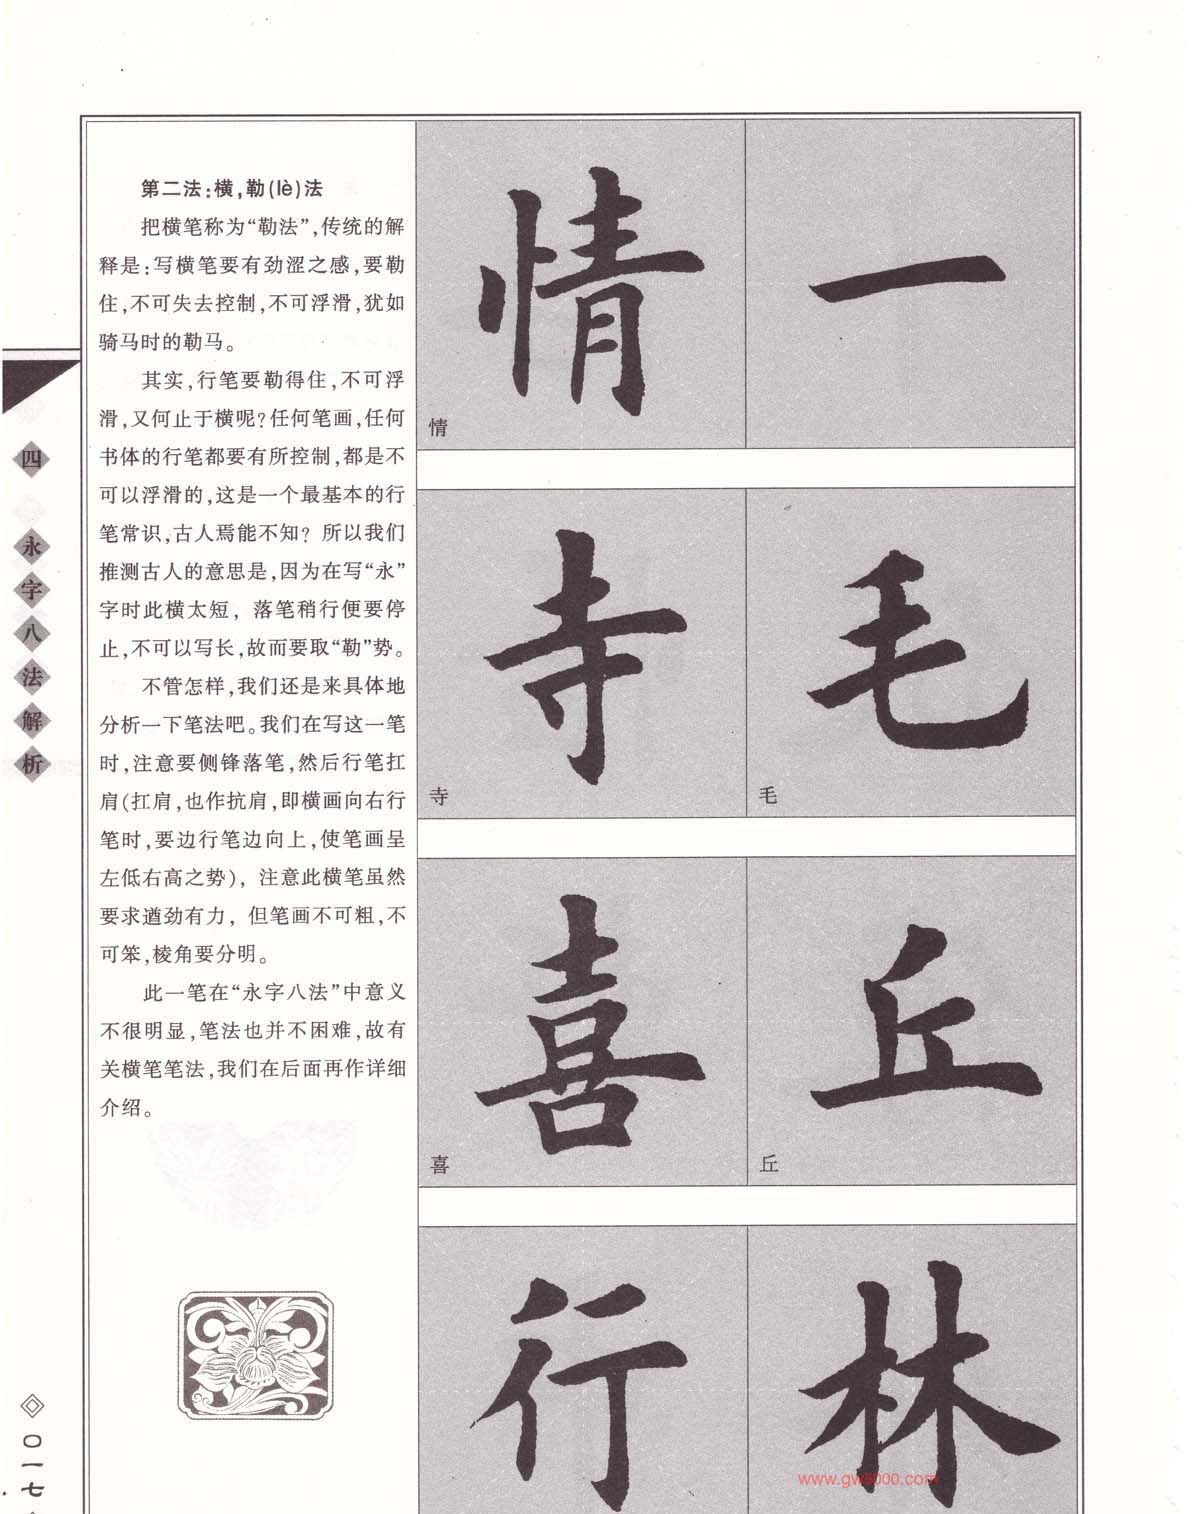 第二法:横,勒(lè)法
把横笔称为“勒法”,传统的解
释是:写横笔要有劲涩之感,要勒
住,不可失去控制,不可浮滑,犹如
骑马时的勒马。
其实,行笔要勒得住,不可浮
滑,又何止于横呢?任何笔画,任何
书体的行笔都要有所控制,都是不
可以浮滑的,这是一个最基本的行
笔常识,古人焉能不知? 所以我们
推测古人的意思是,因为在写“永”
字时此横太短, 落笔稍行便要停
止,不可以写长,故而要取“勒”势。
不管怎样,我们还是来具体地
分析一下笔法吧。我们在写这一笔
时,注意要侧锋落笔,然后行笔扛
肩(扛肩,也作抗肩,即横画向右行
笔时,要边行笔边向上,使笔画呈
左低右高之势), 注意此横笔虽然
要求遒劲有力, 但笔画不可粗,不
可笨,棱角要分明。
此一笔在“永字八法”中意义
不很明显,笔法也并不困难,故有
关横笔笔法,我们在后面再作详细
介绍。
情
一
情
寺
毛
寺
毛
喜
丘
喜
丘
行
林
四 永字八法解析
〇一七
www.gw8000.com